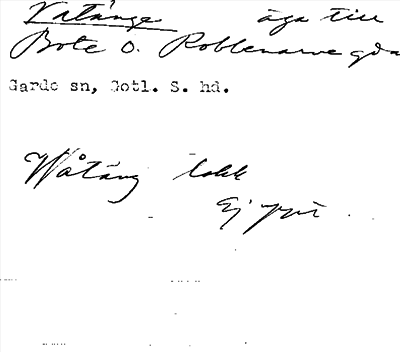 Vatänge äga till
Bote o. Robbenarve gda
Garde sn, Gotl. S. hd.
Wåtäng
Ej